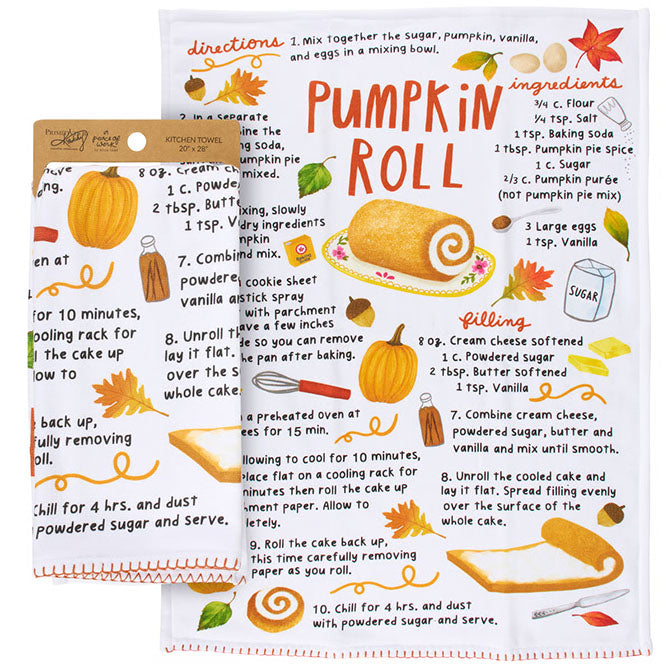 directions 1. Mix together the sugar, pumpkin, vanilla,
and eggs in a mixing bowl.
PUMPKIN
ROLL
ingredients
3/4 c. Flour
1/4 tsp. Salt
1 tsp. Baking soda
1 tbsp. Pumpkin pie spice
1 c. Sugar
2/3 c. Pumpkin purée
(not pumpkin pie mix)
3 Large eggs
1 tsp. Vanilla
SUGAR
2. In a separate
bine the
ng soda,
umpkin pie
mixed.
ixing, slowly
dry ingredients
mpkin
nd mix.
cookie sheet
stick spray
with parchment
ave a few inches
de so you can remove
he pan after baking.
n a preheated oven at
ees for 15 min.
llowing to cool for 10 minutes,
place flat on a cooling rack for
minutes then roll the cake up
hment paper. Allow to
letely.
9. Roll the cake back up,
this time carefully removing
paper as you roll.
10. Chill for 4 hrs. and dust
with powdered sugar and serve.
filling
8 oz. Cream cheese softened
1 c. Powdered sugar
2 tbsp. Butter softened
1 tsp. Vanilla
7. Combine cream cheese,
powdered sugar, butter and
vanilla and mix until smooth.
8. Unroll the cooled cake and
lay it flat. Spread filling evenly
over the surface of the
whole cake.
KITCHEN TOWEL
20" x 28"
ove
ng.
8 oz. Cream ch
1 c. Powde
2 tbsp. Butte
1 tsp. V
en at
7. Combine
powdere
vanilla a
for 10 minutes,
ooling rack for
l the cake up
low to
8. Unroll th
lay it flat.
over the s
whole cake
back up,
fully removing
oll.
Chill for 4 hrs. and dust
powdered sugar and serve.